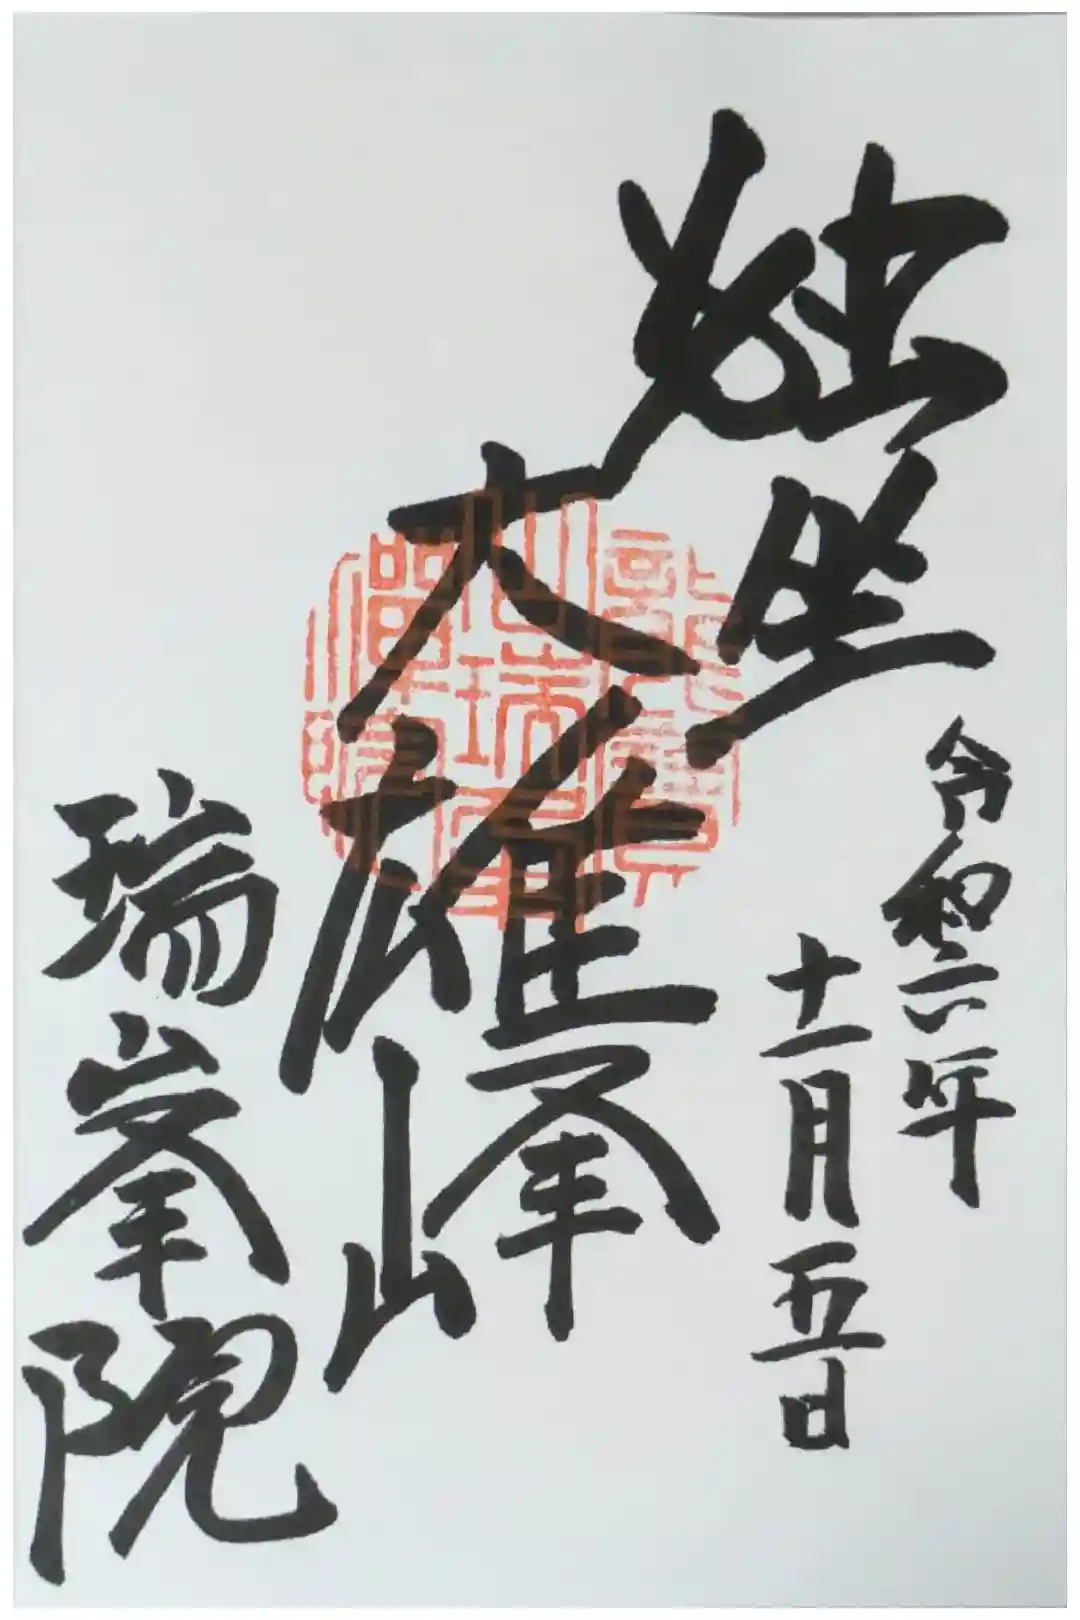 独坐
大雄峰
令和六年
十一月五日
瑞峯院